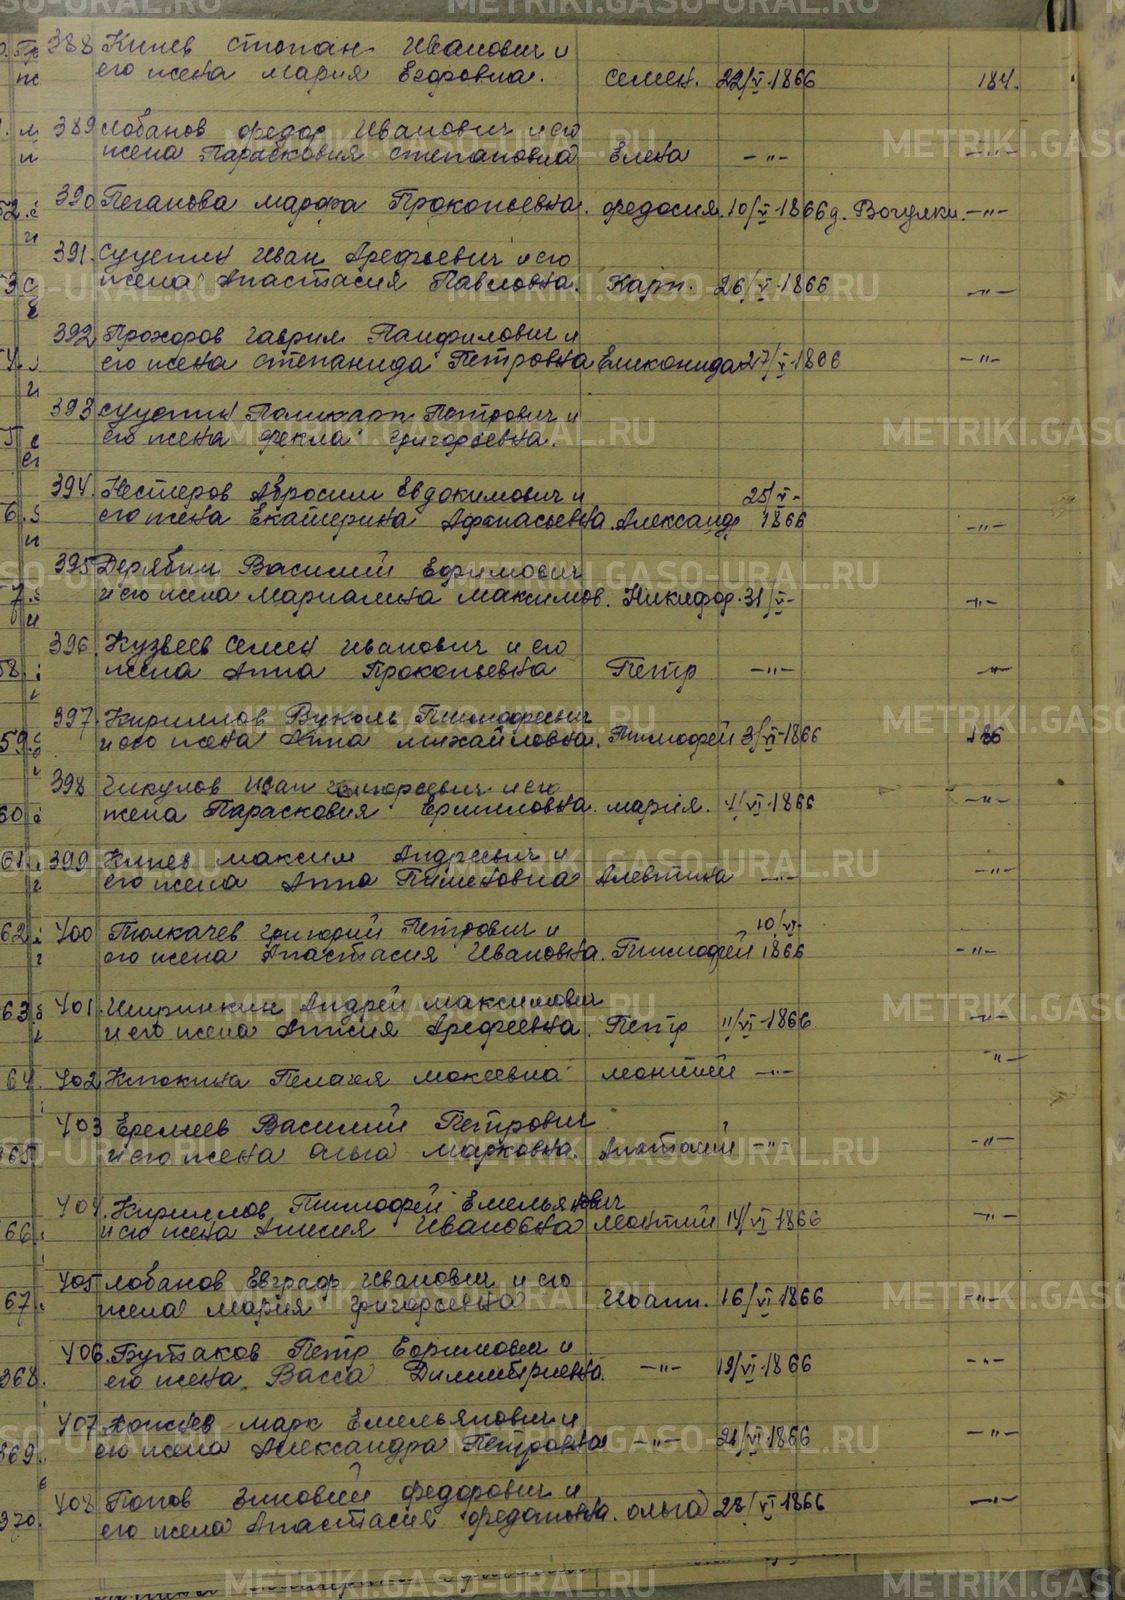 388 Кинев Степан Иванович и
его жена Мария Егоровна. Семен. 22/V-1866 184.
389 Лобанов Федор Иванович и его
жена Парасковия Степановна Елена -"- -"-
390 Пеганова Марфа Прокопьевна. Федосия. 10/V-1866 д. Вогулки. -"-
391. Сустин Иван Арефьевич и его
жена Анастасия Павловна. Карп. 26/V-1866 -"-
392 Прохоров Гаврил Панфилович и
его жена Степанида Петровна 27/V-1866 -"-
393 Сустин Поликарп Петрович и
его жена Фекла Григорьевна.
394. Нестеров Абросим Евдокимович и 25/V-
его жена Екатерина Афанасьевна. Александр 1866 -"-
395 Дерябин Василий Ефимович
и его жена Мариамна Максимов. Никифор. 31/V- -"-
396. Кузвеев Семен Иванович и его
жена Анна Прокопьевна Петр -"- -"-
397. Кириллов Вуколь Тимофеевич
и его жена Анна Михайловна. Тимофей 3/VI-1866 186
398 Чикулов Иван Григорьевич и его
жена Парасковия Ермиловна. Мария. 4/VI-1866 -"-
399 Кинев Максим Андреевич и
его жена Анна Пименовна Алевтина -"- -"-
400 Толкачев Григорий Петрович и 10/VI-
его жена Анастасия Ивановна. Тимофей 1866 -"-
401. Ширинкин Андрей Максимович
и его жена Анисия Арефеевна. Петр 11/VI-1866 -"-
402 Кпокина Пелагея Мокеевна Монтий -"- -"-
403 Еремеев Василий Петрович
и его жена Ольга Марковна. Анатолий -"- -"-
404. Кириллов Тимофей Емельянович
и его жена Анисия Ивановна Монтий 14/VI 1866 -"-
405 Лобанов Евграф Иванович и его
жена Мария Григорьевна Иоанн. 16/VI-1866 -"-
406. Бутаков Петр Ефимович и
его жена Васса Димитриевна. -"- 19/VI-1866 -"-
407 Марк Емельянович и
его жена Александра Петровна -"- 21/VI-1866 -"-
408 Попов Зиновий Федорович и
его жена Анастасия Ольга 28/VI-1866 -"-
METRIKI.GASO-URAL.RU